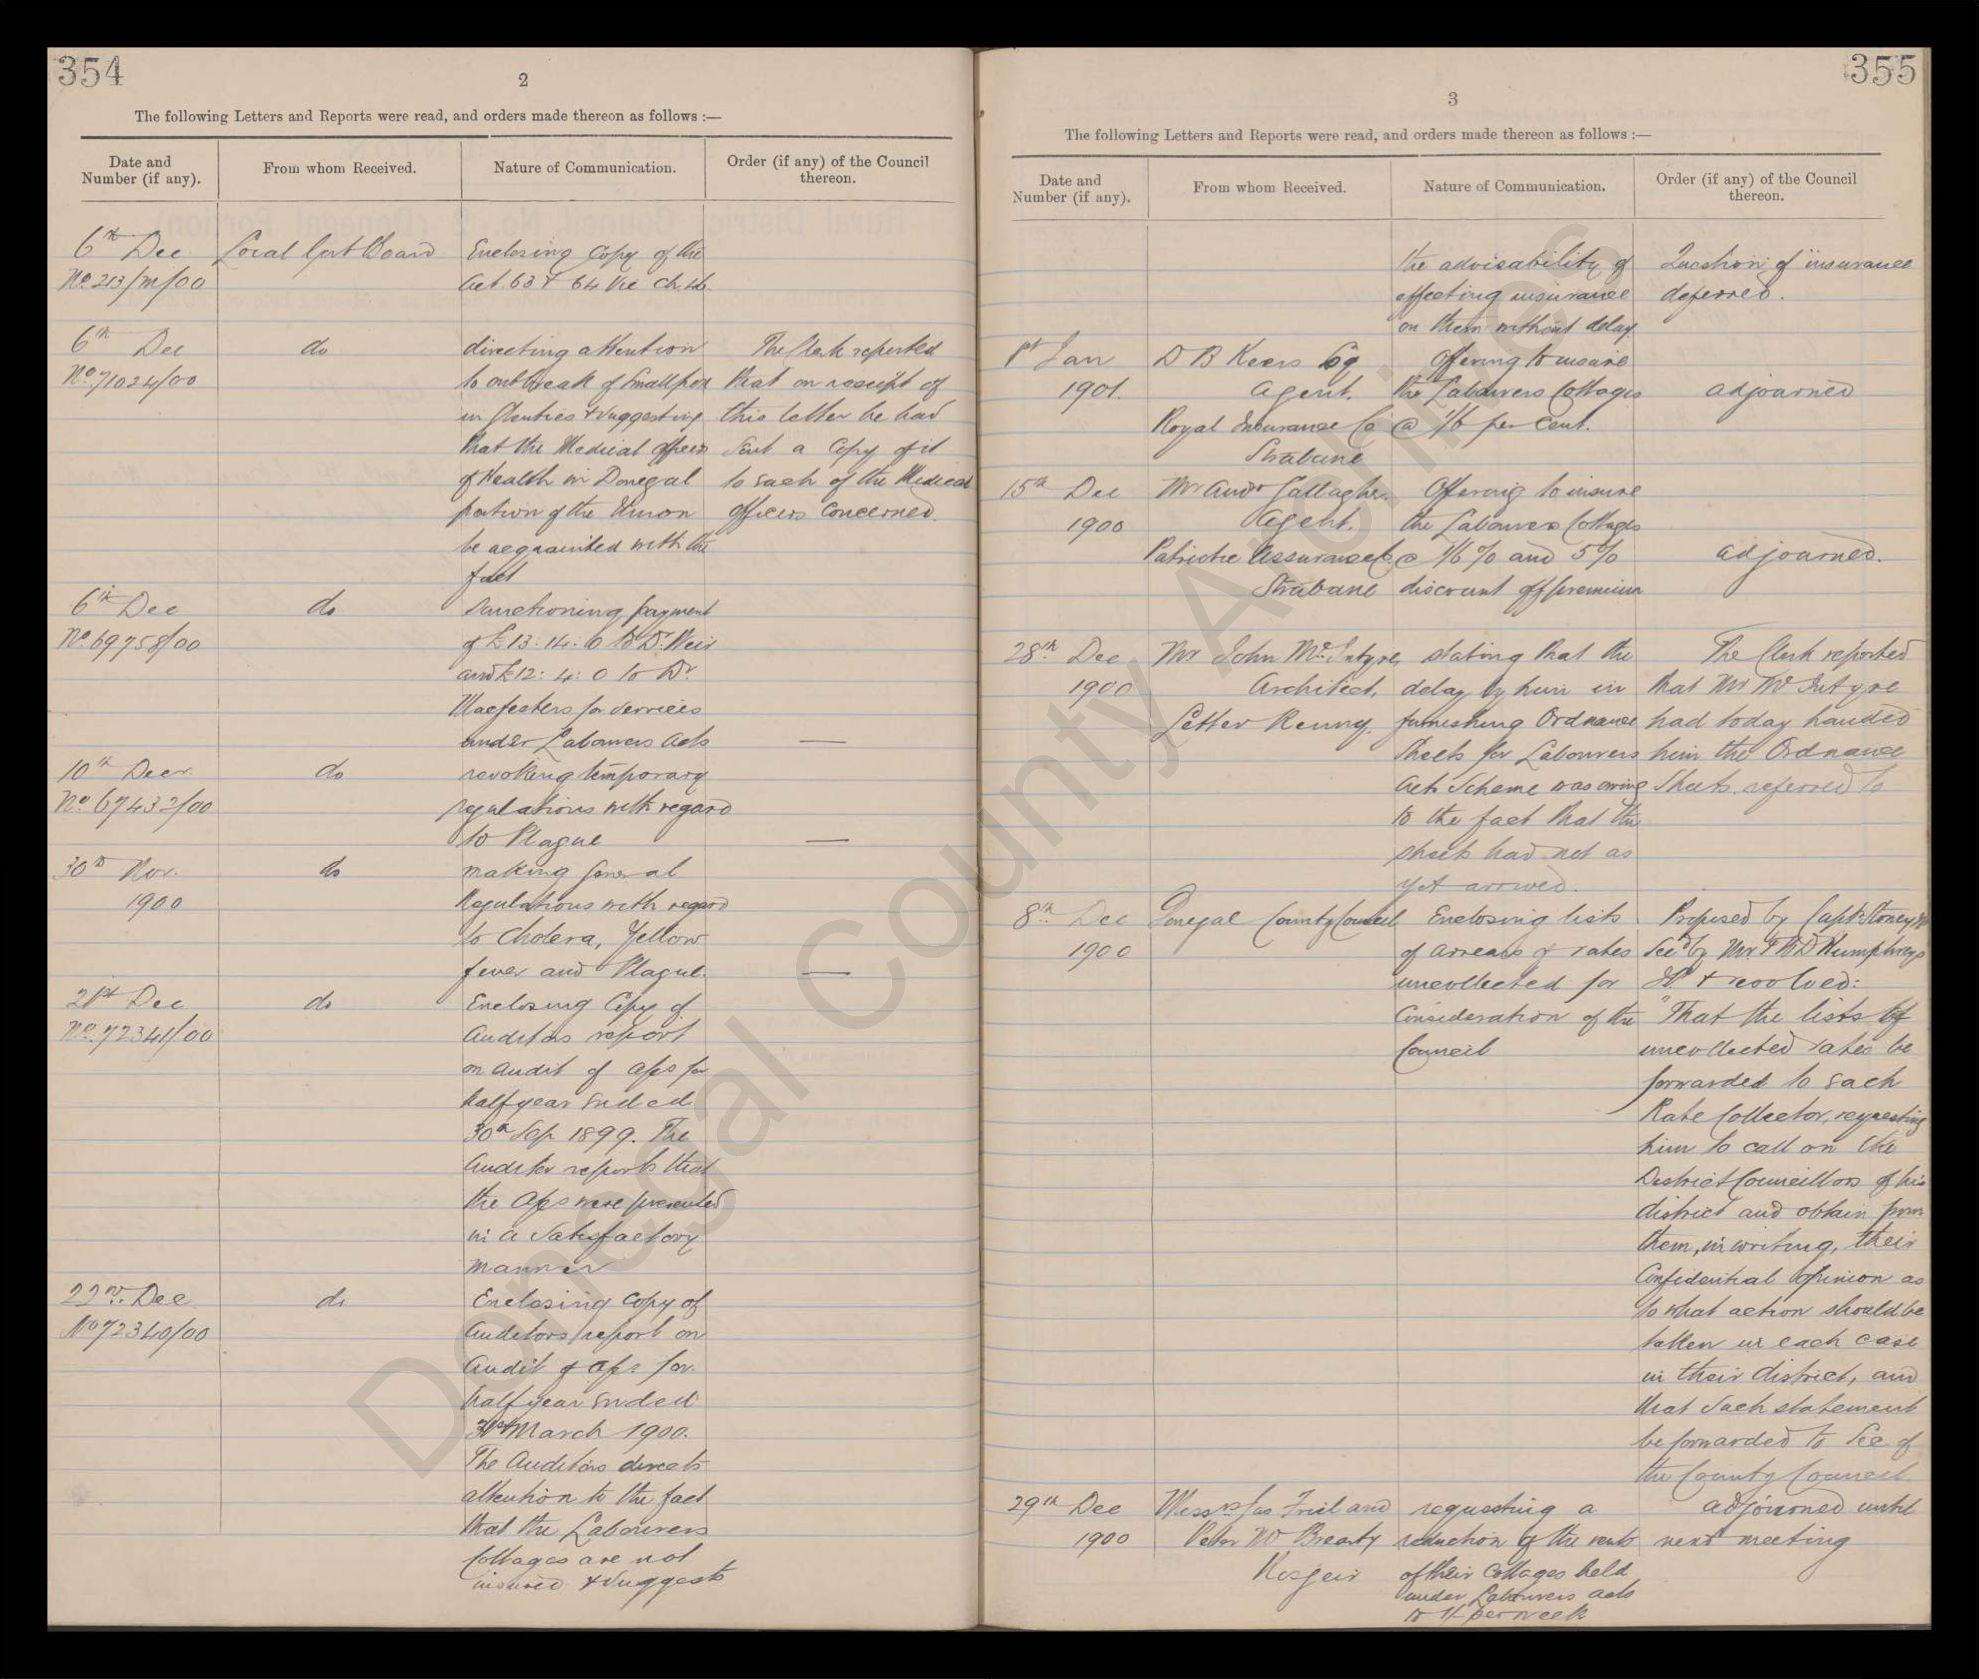 354
2
The following Letters and Reports were read, and orders made thereon as follows :—
Date and Number (if any).
From whom Received.
Nature of Communication.
Order (if any) of the Council thereon.
6th Dec Local Govt Board Enclosing Copy of the
No. 213/M/00 Act. 63 & 64 Vic Ch.
6th Dec do directing attention The Clerk reported
No. 71024/00 to outbreak of Smallpox that on receipt of
in Glenties & suggesting this letter he had
that the Medical officers sent a Copy of it
of Health in Donegal to each of the Medical
portion of the Union officers concerned.
be acquainted with the
fact
6th Dec do Sanctioning payment
No. 69758/00 of £13:14:6 to Dr. Weir
and £12:4:0 to Dr.
Macfeeters for services
under Labourers Acts —
10th Decr. do revoking temporary
No 67432/00 regulations with regard
to Plague —
30th Nov. do making General
1900 Regulations with regard
to Cholera, Yellow
fever and Plague. —
21st Dec do Enclosing Copy of
No. 72341/00 Auditors report
on audit of a/cs for
half year ended
30th Sep 1899. The
Auditor reports that
the a/cs were presented
in a Satisfactory
manner
22nd. Dec do Enclosing copy of
No 72340/00 Auditors report on
Audit of a/cs for
half year ended
31st March 1900.
The Auditors directs
attention to the fact
that the Labourers
Cottages are not
insured & suggests
355
3
The following Letters and Reports were read, and orders made thereon as follows :—
Date and Number (if any).
From whom Received.
Nature of Communication.
Order (if any) of the Council thereon.
the advisability of Question of insurance
effecting insurance deferred.
on them without delay
1st Jan D B Keers Esq Offering to insure
1901. Agent. the Labourers Cottages adjourned
Royal Insurance Co @ 1/6 per cent.
Strabane
15th Dec Mr Andr Gallagher. Offering to insure
1900 Agent. the Labourers Cottages
Patriotic Assurance Co @ 1/6 % and 5% adjourned.
Strabane discount off premium
28th Dec Mr John McIntyre, stating that the The Clerk reported
1900 Architect, delay by him in that Mr McIntyre
Letter Kenny. furnishing Ordnance had today handed
Sheets for Labourers him the Ordnance
Acts Scheme was owing Sheets referred to
to the fact that the
sheets had not as
yet arrived.
8th Dec Donegal County Council Enclosing lists Proposed by Capt. Stoney
1900 of arrears of rates Secd by Mr T W D Humphreys
uncollected for JP & resolved:
Consideration of the "That the lists of
Council uncollected rates be
forwarded to each
Rate Collector, requesting
him to call on the
District Councillors of his
district and obtain from
them, in writing, their
Confidential opinion as
to what action should be
taken in each case
in their district, and
that such statement
be forwarded to Sec of
the County Council
29th Dec Messrs Jas Friel and requesting a adjourned until
1900 Peter McBrearty reduction of the rents next meeting
Rosgeir of their Cottages held
under Labourers acts
to 1/- per week
Donegal County Archives